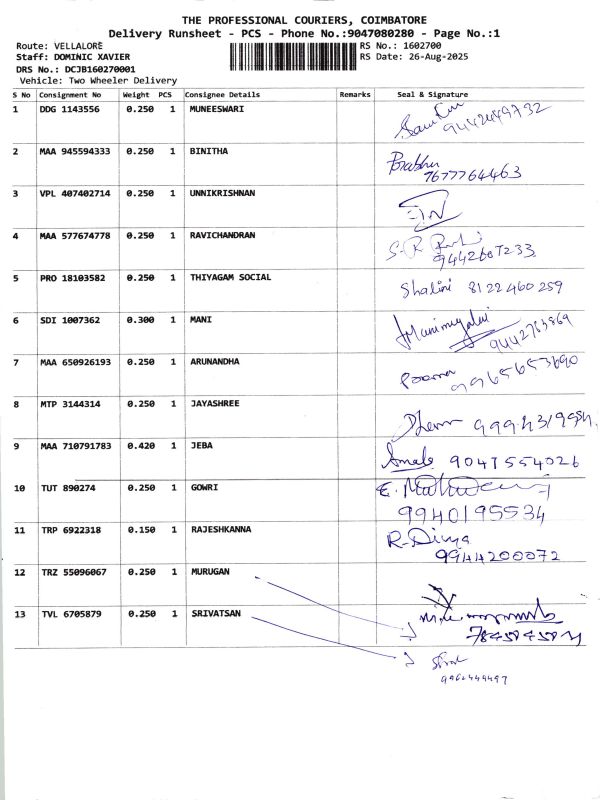 THE PROFESSIONAL COURIERS, COIMBATORE
Delivery Runsheet - PCS - Phone No.:9047080280 - Page No.:1
Route: VELLALORE RS No.: 1602700
Staff: DOMINIC XAVIER RS Date: 26-Aug-2025
DRS No.: DCJB160270001
Vehicle: Two Wheeler Delivery
S No Consignment No Weight PCS Consignee Details Remarks Seal & Signature
1 DDG 1143556 0.250 1 MUNEESWARI
9442449732
2 MAA 945594333 0.250 1 BINITHA Prabhu
7677764463
3 VPL 407402714 0.250 1 UNNIKRISHNAN
4 MAA 577674778 0.250 1 RAVICHANDRAN S.R
9442607233
5 PRO 18103582 0.250 1 THIYAGAM SOCIAL Shalini 8122460259
6 SDI 1007362 0.300 1 MANI
9442763869
7 MAA 650926193 0.250 1 ARUNANDHA
9965653690
8 MTP 3144314 0.250 1 JAYASHREE
9 MAA 710791783 0.420 1 JEBA Amala 9047554026
10 TUT 890274 0.250 1 GOWRI E.
9940195534
11 TRP 6922318 0.150 1 RAJESHKANNA R-Divya
9944200072
12 TRZ 55096067 0.250 1 MURUGAN
13 TVL 6705879 0.250 1 SRIVATSAN
9962449497